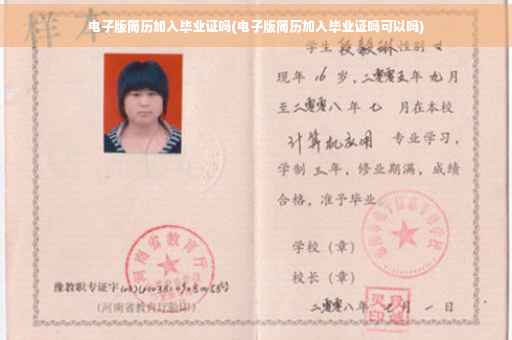 电子版简历加入毕业证吗(电子版简历加入毕业证吗可以吗)
样本
学生 段毅琳 性别 女
现年 16 岁，二零零五年 九月
至二零零八年 七 月在本校
计算机应用 专业学习，
学制 三年，修业期满，成绩
合格，准予毕业
学校（章）
校长（章）
二零零八年 七月 一日
河南省教育厅
豫教职专证字
(河南省教育厅验印)